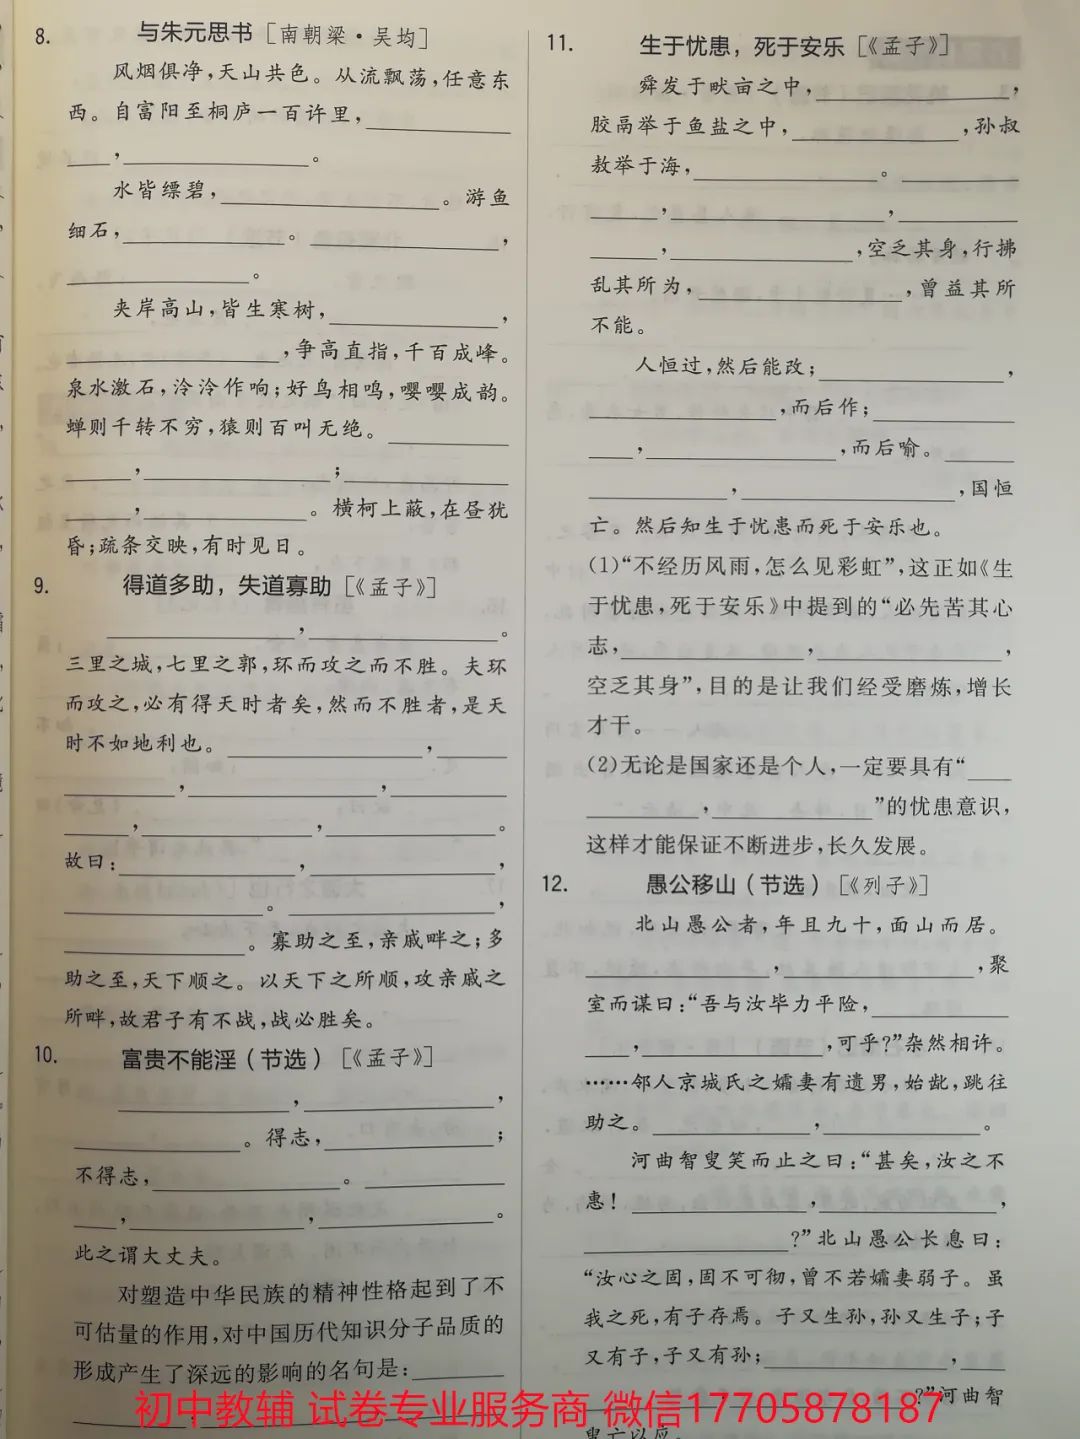 8. 与朱元思书［南朝梁·吴均］
风烟俱净,天山共色。从流飘荡,任意东
西。自富阳至桐庐一百许里,
,。
水皆缥碧,。游鱼
细石,。,
。
夹岸高山,皆生寒树,,
,争高直指,千百成峰。
泉水激石,泠泠作响;好鸟相鸣,嘤嘤成韵。
蝉则千转不穷,猿则百叫无绝。
,;
,。横柯上蔽,在昼犹
昏;疏条交映,有时见日。
9. 得道多助，失道寡助［《孟子》］
,。
三里之城,七里之郭,环而攻之而不胜。夫环
而攻之,必有得天时者矣,然而不胜者,是天
时不如地利也。,
,,
,,。
故曰:,,
。,
。寡助之至,亲戚畔之;多
助之至,天下顺之。以天下之所顺,攻亲戚之
所畔,故君子有不战,战必胜矣。
10. 富贵不能淫（节选）［《孟子》］
,,
。得志,;
不得志,。
,,。
此之谓大丈夫。
对塑造中华民族的精神性格起到了不
可估量的作用,对中国历代知识分子品质的
形成产生了深远的影响的名句是:
11. 生于忧患，死于安乐［《孟子》］
舜发于畎亩之中,,
胶鬲举于鱼盐之中,,孙叔
敖举于海,。
,,
,,空乏其身,行拂
乱其所为,,曾益其所
不能。
人恒过,然后能改;,
,而后作;
,,而后喻。
,,国恒
亡。然后知生于忧患而死于安乐也。
(1)“不经历风雨,怎么见彩虹”,这正如《生
于忧患,死于安乐》中提到的“必先苦其心
志,,,
空乏其身”,目的是让我们经受磨炼,增长
才干。
(2)无论是国家还是个人,一定要具有“
,”的忧患意识,
这样才能保证不断进步,长久发展。
12. 愚公移山（节选）［《列子》］
北山愚公者,年且九十,面山而居。
,,聚
室而谋曰:“吾与汝毕力平险,
,,可乎?”杂然相许。
……邻人京城氏之孀妻有遗男,始龀,跳往
助之。,。
河曲智叟笑而止之曰:“甚矣,汝之不
惠!,,
?”北山愚公长息曰:
“汝心之固,固不可彻,曾不若孀妻弱子。虽
我之死,有子存焉。子又生孙,孙又生子;子
又有子,子又有孙;,
?”河曲智
叟亡以应。
初中教辅 试卷专业服务商 微信17705878187